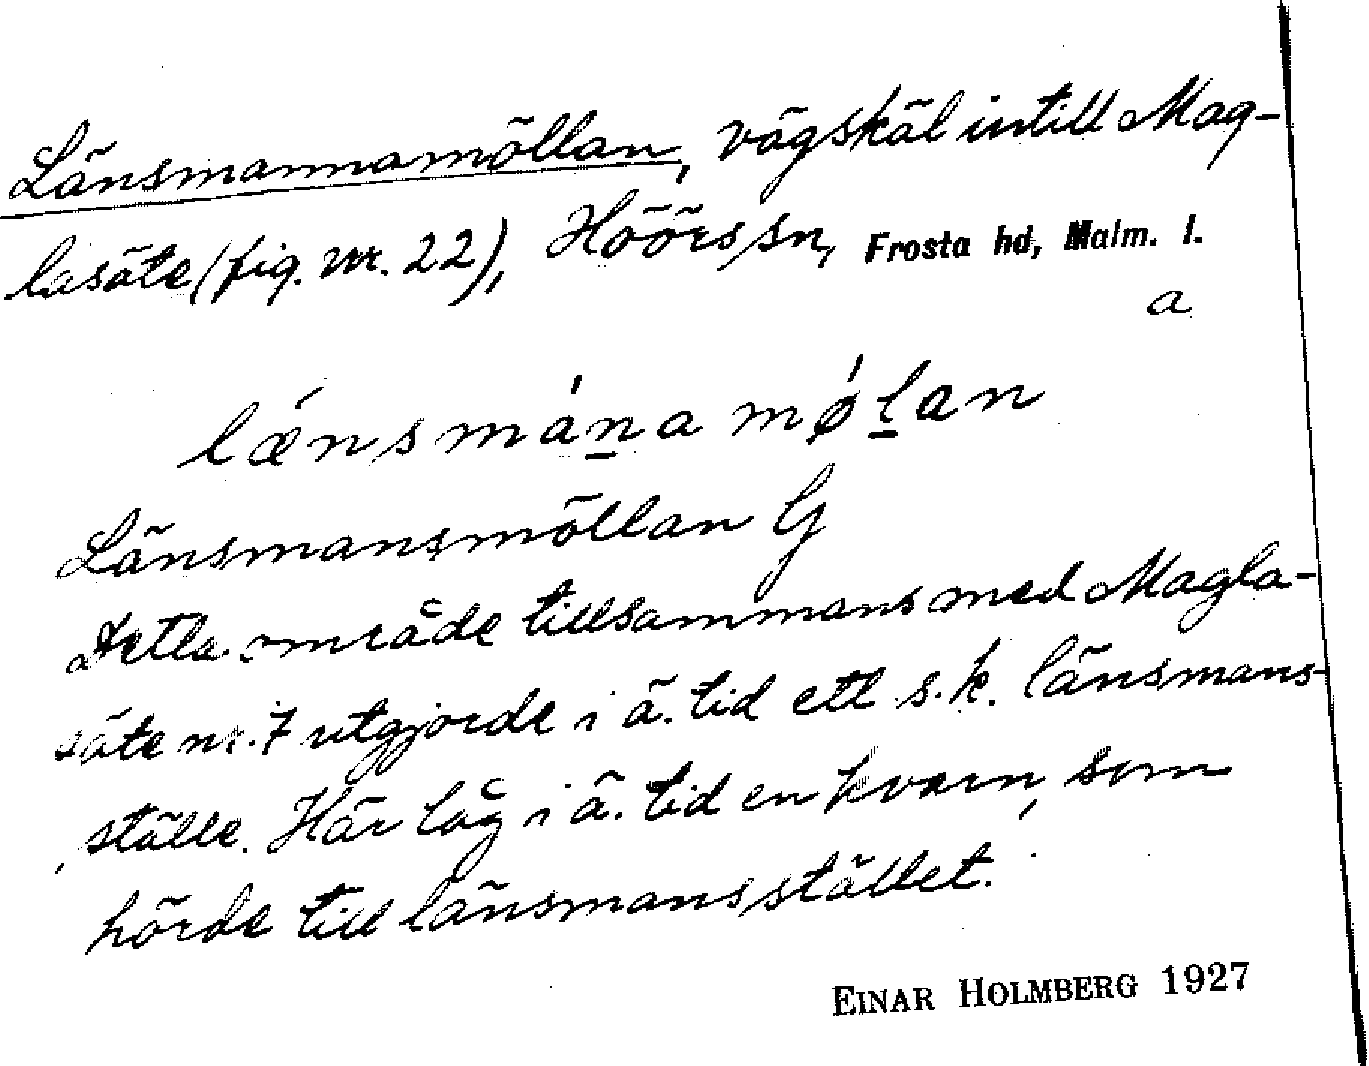 Länsmannamöllan, vägskäl intill Mag-
lasäte (fig. nr. 22), Höörs sn, Frosta hd, Malm. l.
a
lǽnsmána̲ mǿl̲an
Länsmansmöllan G
Detta område tillsammans med Magla-
säte nr. 7 utgjorde i ä. tid ett s.k. länsmans-
ställe. Här låg i ä. tid en kvarn, som
hörde till länsmansstället.
EINAR HOLMBERG 1927